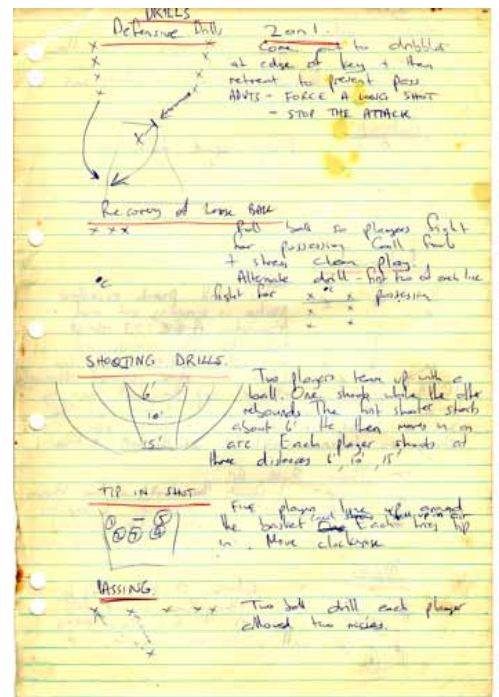 DRILLS
Defensive Drills
2 on 1.
Come out to dribbler
at edge of key + then
retreat to prevent pass
ADVTS - FORCE A LONG SHOT
- STOP THE ATTACK
Recovery of Loose Ball
Roll ball so players fight
for possession Call fouls
+ stress clean play.
Alternate drill - first two of each line
fight for possession
SHOOTING DRILLS.
Two players team up with a
ball. One shoots while the other
rebounds The first shooter starts
about 6' He then moves in an
arc Each player shoots at
three distances 6', 10', 15'
6'
10'
15'
TIP IN SHOT
Five players line up around
the basket Each tries tip
in. Move clockwise
PASSING.
Two ball drill each player
allowed two misses.